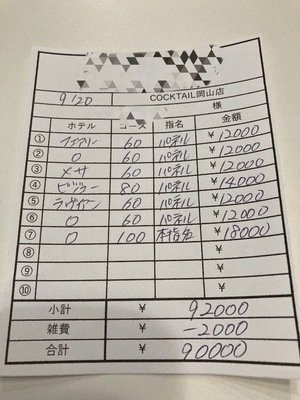 9/20 COCKTAIL岡山店
様
ホテル コース 指名 金額
① フェアリー 60 パネル ¥12000
② O 60 パネル ¥12000
③ メサ 60 パネル ¥12000
④ ビジュー 80 パネル ¥14000
⑤ ラヴィアン 60 パネル ¥12000
⑥ O 60 パネル ¥12000
⑦ O 100 本指名 ¥18000
⑧ ¥
⑨ ¥
⑩ ¥
小計 ¥ 92000
雑費 ¥ -2000
合計 ¥ 90000